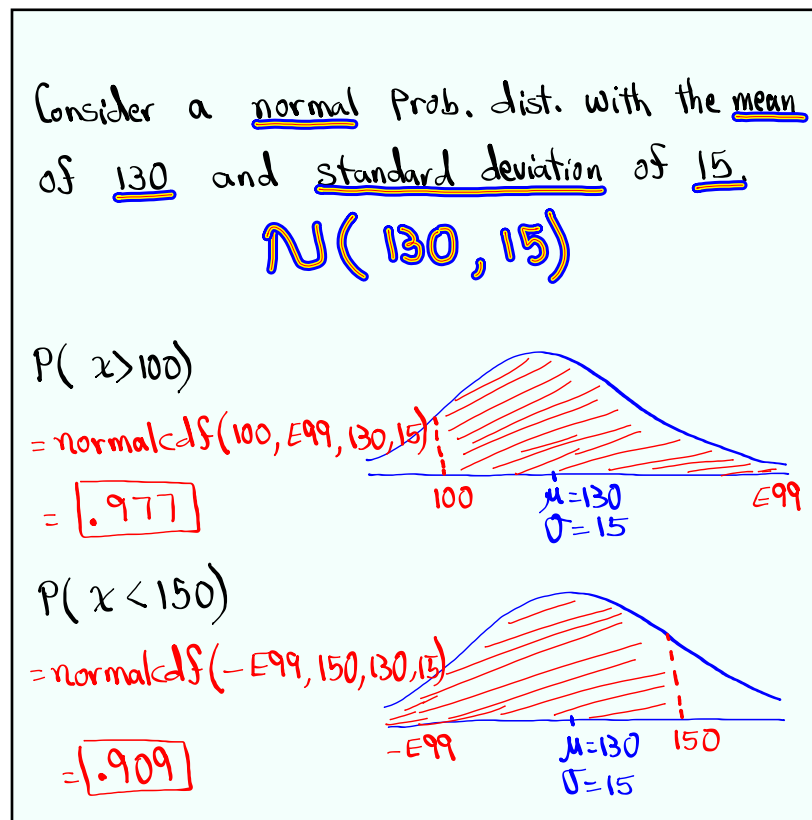 Consider a normal Prob. dist. with the mean
of 130 and standard deviation of 15.
N(130, 15)
P( x>100)
= normalcdf(100, E99, 130, 15)
= .977
100
μ=130
σ=15
E99
P( x < 150)
= normalcdf(-E99, 150, 130, 15)
= .909
-E99
μ=130
σ=15
150